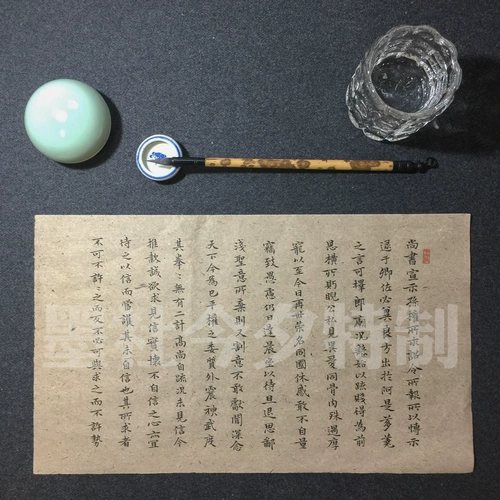 尚書宣示孫權所求詔令所報所以博示
逮于卿佐必冀良方出於阿是芻蕘
之言可擇郎廟況繇始以疏賤得為前
恩橫所盼睨公私見異愛同骨肉殊遇厚
寵以至今日再世榮名同國休慼敢不自量
竊致愚慮仍日達晨坐以待旦退思鄙
淺聖意所棄則又割意不敢獻聞深念
天下今為已平權之委質外震神武度
其拳:無有二計高尚自疏況未見信今
推款誠欲求見信實懷不自信之心亦宜
待之以信而當護其未自信也其所求者
不可不許:之而反不必可與求之而不許勢
夕特制